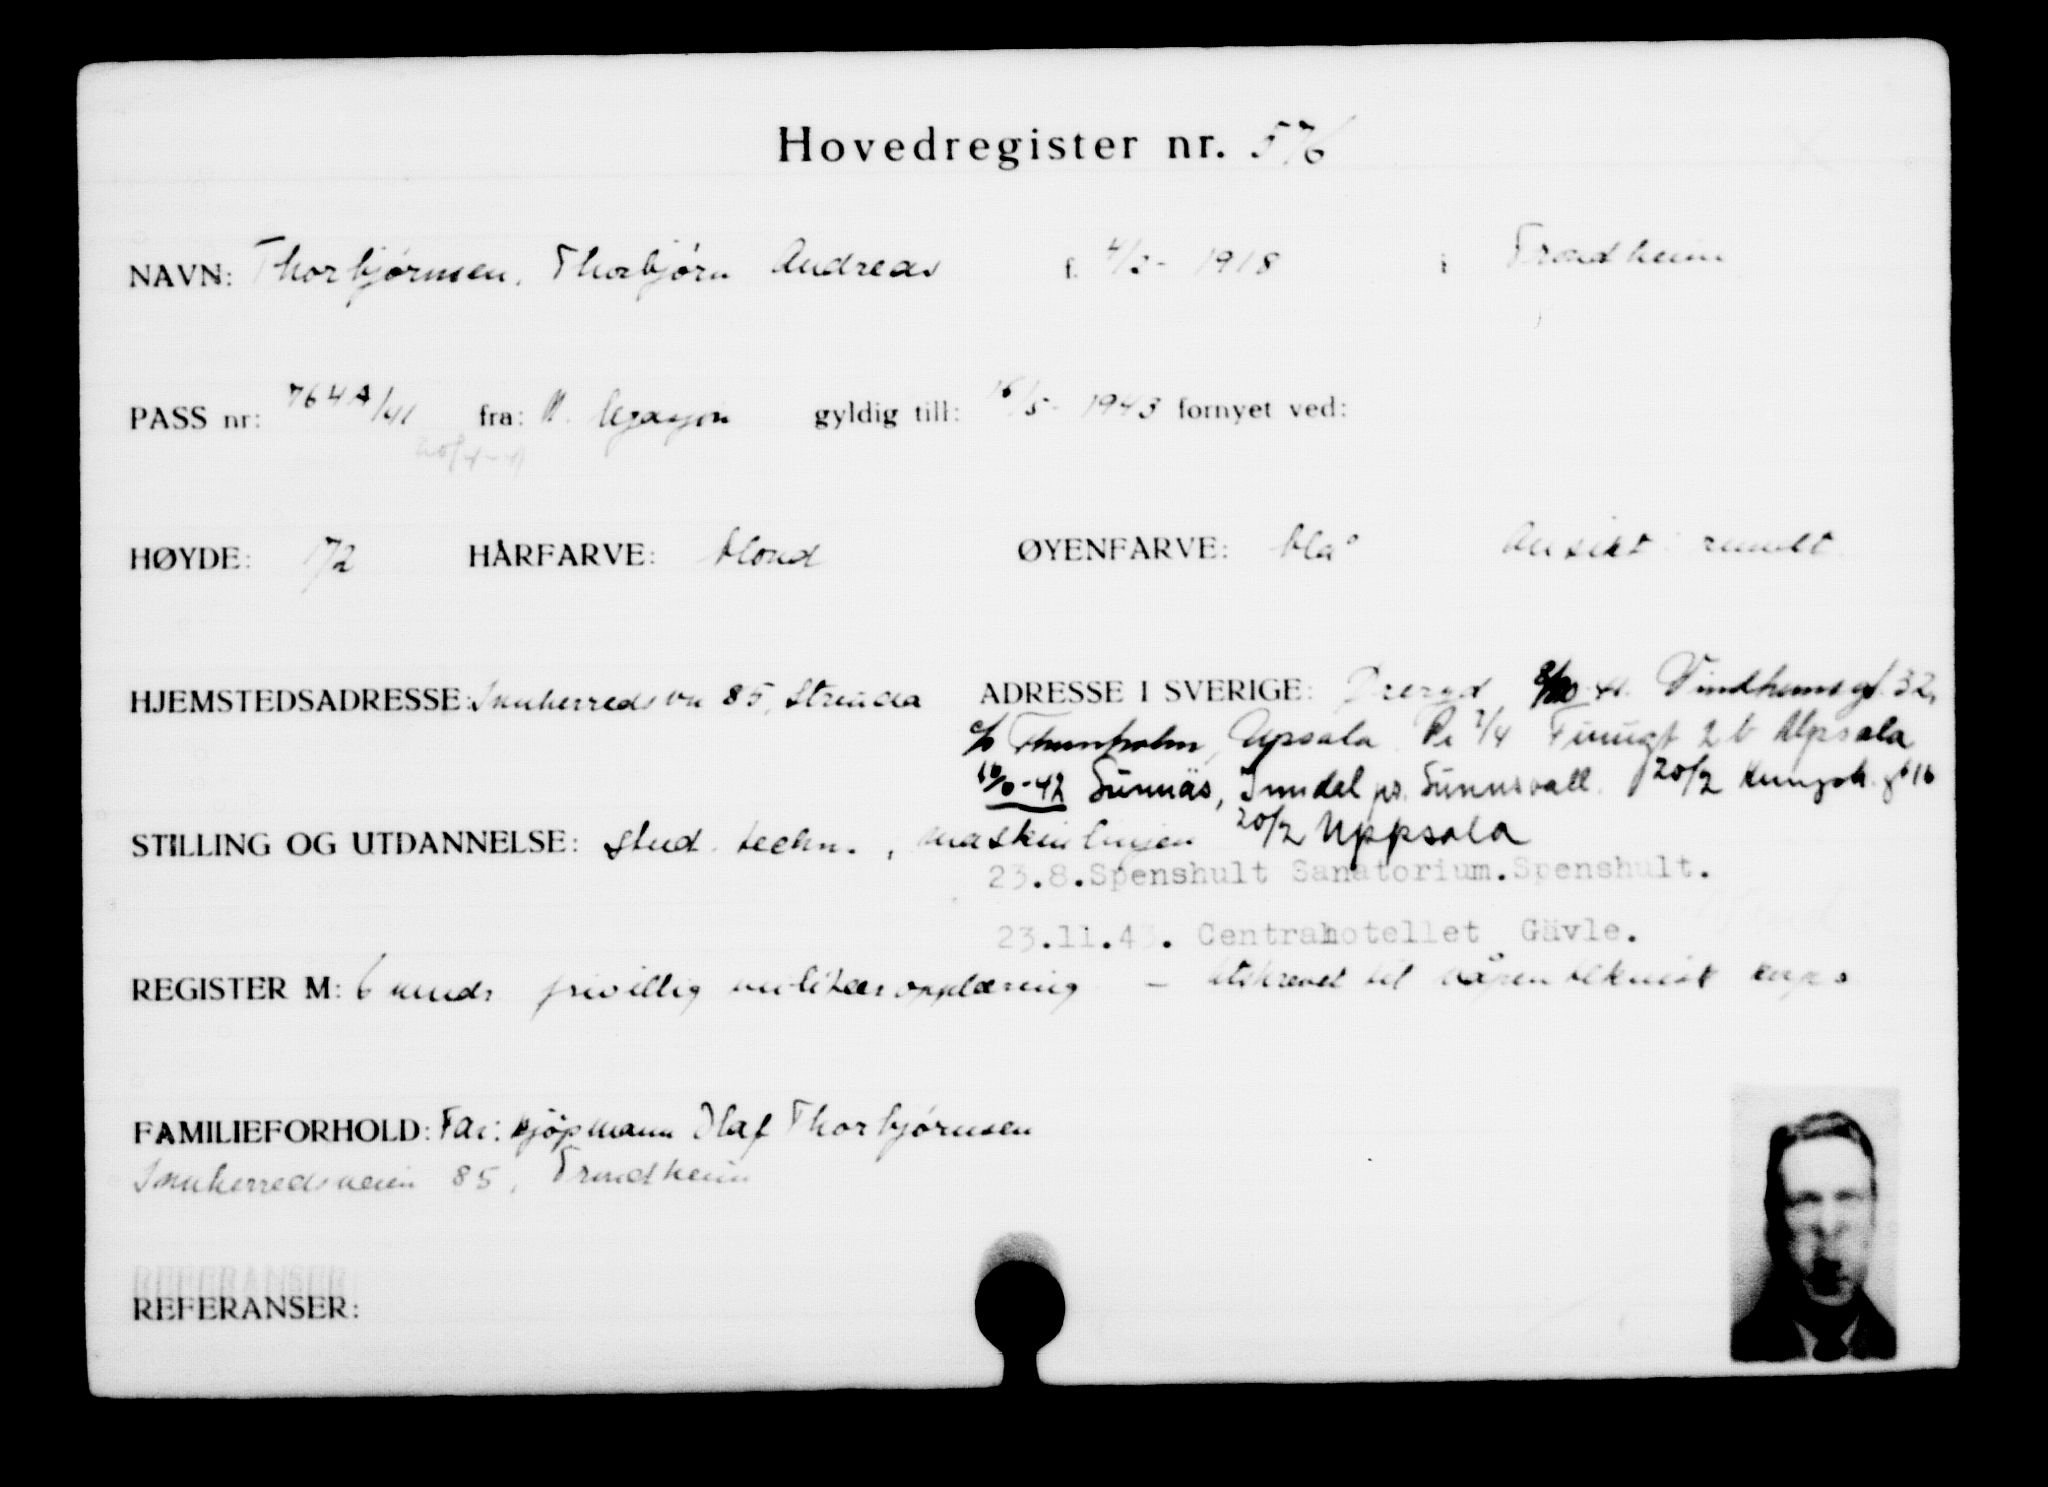 Hovedregister nr. 576
NAVN: Thorbjørnsen, Thorbjørn Andreas f. 4/3- 1918 i Trondheim
PASS nr: 764A/41 fra: N. legasjon gyldig till: 16/5- 1943 fornyet ved:
20/4-41
HØYDE: 172 HÅRFARVE: blond ØYENFARVE: blå Ansikt: rundt.
HJEMSTEDSADRESSE: Innherredsvn 85, Strinda ADRESSE I SVERIGE: Øreryd 41. 32,
c/o Upsala. 2/4 2 b Upsala
-42 Sunnäs, Indal pr. Sundsvall. 20/2 16
STILLING OG UTDANNELSE: stud. techn., maskinlinjen 20/2 Uppsala
23.8. Spenshult Sanatorium. Spenshult.
23.11.43. Centralhotellet Gävle.
REGISTER M: 6 mndr frivillig militær opplæring - utskrevet til våpenteknisk korps
FAMILIEFORHOLD: Far: kjøpmann Olaf Thorbjørnsen
Innherredsveien 85, Trondheim
REFERANSER
REFERANSER: